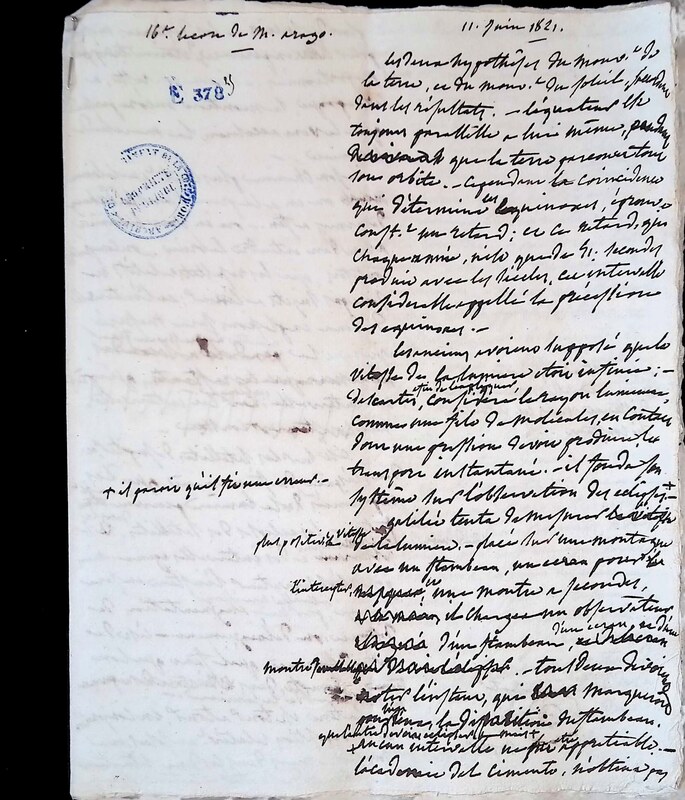 16e lecon de M. arago.
11. Juin 1821.
E 378
les deux hypothèses du mouv.t de
la terre, et du mouv.t du soleil,
dans les résultats. – l'équateur est
toujours parallelle a lui même,
que la terre parcourt tout
son orbite. – Cependant la coincidence
qui détermine les equinoxes, éprouve
const.t un retard; et ce retard, qui
chaque année, n'est que de 51. secondes
produit avec les siècles, cet intervalle
considerable appellé la précession
des equinoxes. –
les anciens avoient supposé que la
vitesse de la lumiere etoit infinie; –
descartes, considéra le rayon lumineux,
comme une file de molécules, en contact
dont une pression devoit produire le
transport instantané. – il fonda son
système sur l'observation des eclipses +
+ il paroit qu'il fit une erreur. –
galilée tenta de mesurer la vitesse
plus positivt.
de la lumiere. – placé sur une montagne
avec un flambeau, un ecran pour
l'intercepter
et une montre a secondes,
il chargea un observateur
d'un flambeau, d'un écran, et d'une
montre – tous deux devoient
noter l'instant, que marqueroit
la disparition du flambeau.
aucun intervalle ne fut appretiable. –
l'académie del cimento, n'obtint pas